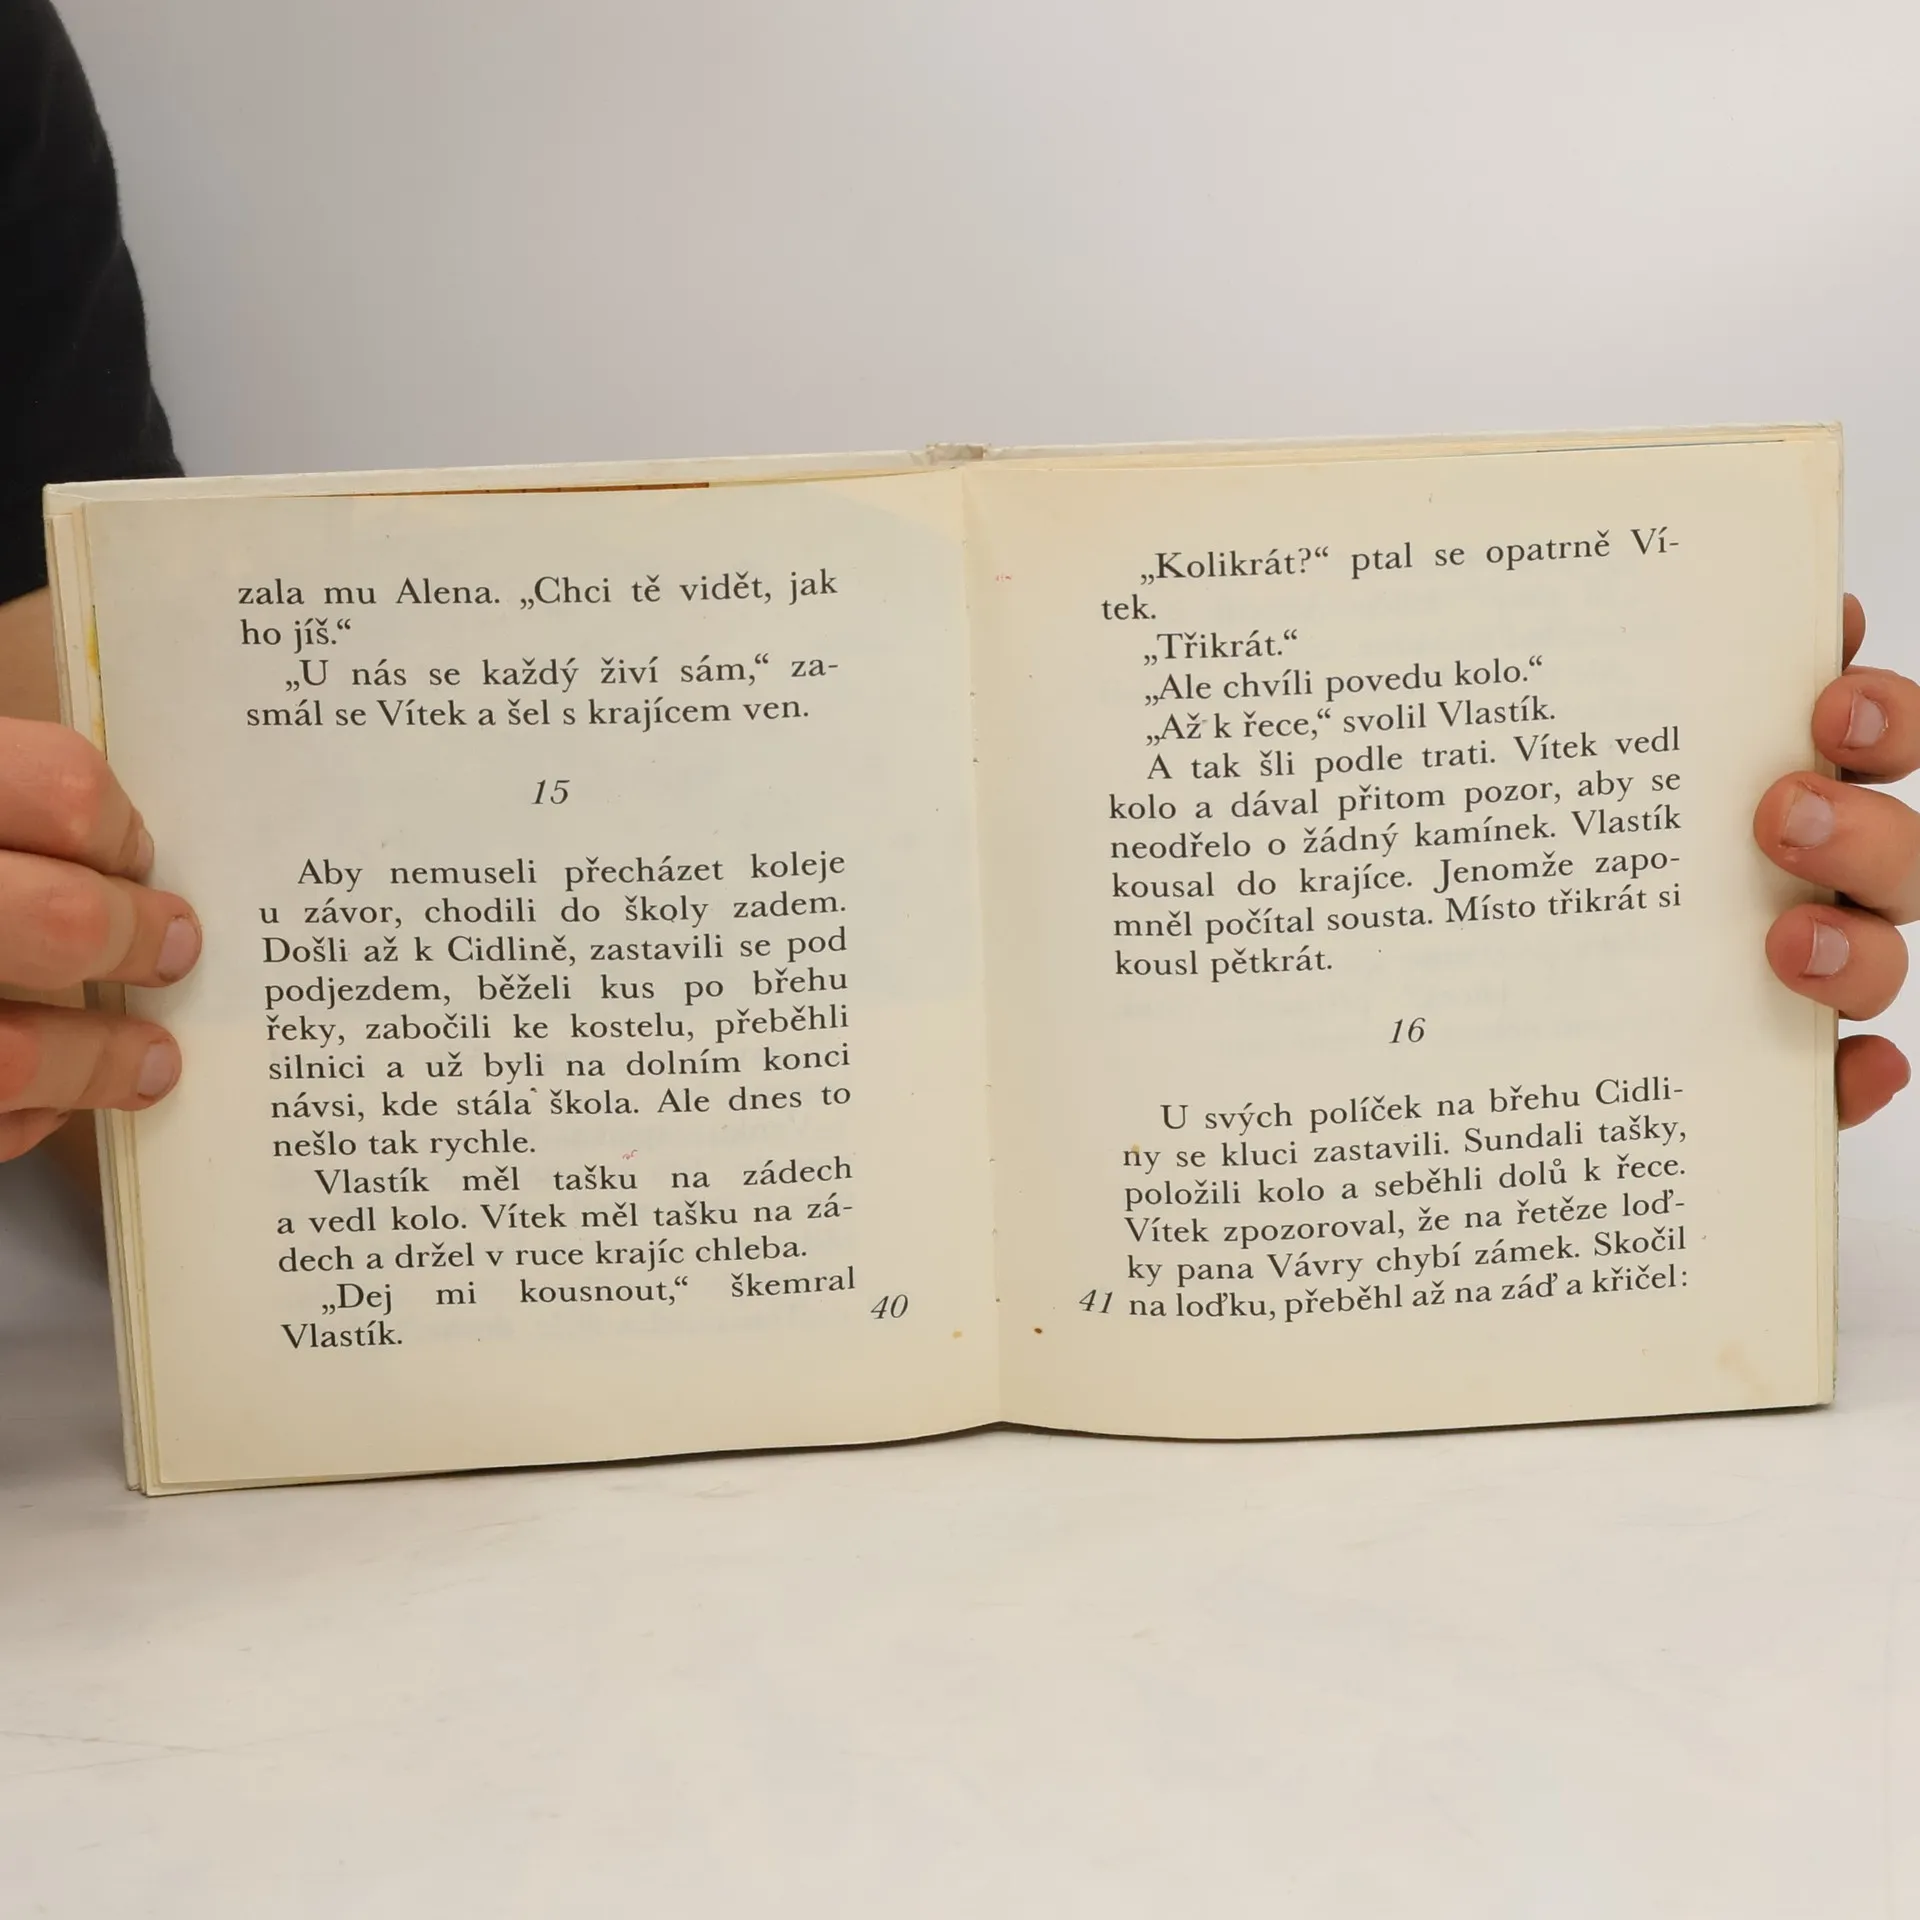 zala mu Alena. „Chci tě vidět, jak
ho jíš.“
„U nás se každý živí sám,“ za-
smál se Vítek a šel s krajícem ven.
15
Aby nemuseli přecházet koleje
u závor, chodili do školy zadem.
Došli až k Cidlině, zastavili se pod
podjezdem, běželi kus po břehu
řeky, zabočili ke kostelu, přeběhli
silnici a už byli na dolním konci
návsi, kde stála škola. Ale dnes to
nešlo tak rychle.
Vlastík měl tašku na zádech
a vedl kolo. Vítek měl tašku na zá-
dech a držel v ruce krajíc chleba.
„Dej mi kousnout,“ škemral
Vlastík.
40
„Kolikrát?“ ptal se opatrně Ví-
tek.
„Třikrát.“
„Ale chvíli povedu kolo.“
„Až k řece,“ svolil Vlastík.
A tak šli podle trati. Vítek vedl
kolo a dával přitom pozor, aby se
neodřelo o žádný kamínek. Vlastík
kousal do krajíce. Jenomže zapo-
mněl počítal sousta. Místo třikrát si
kousl pětkrát.
16
U svých políček na břehu Cidli-
ny se kluci zastavili. Sundali tašky,
položili kolo a seběhli dolů k řece.
Vítek zpozoroval, že na řetěze loď-
ky pana Vávry chybí zámek. Skočil
41 na loďku, přeběhl až na záď a křičel: